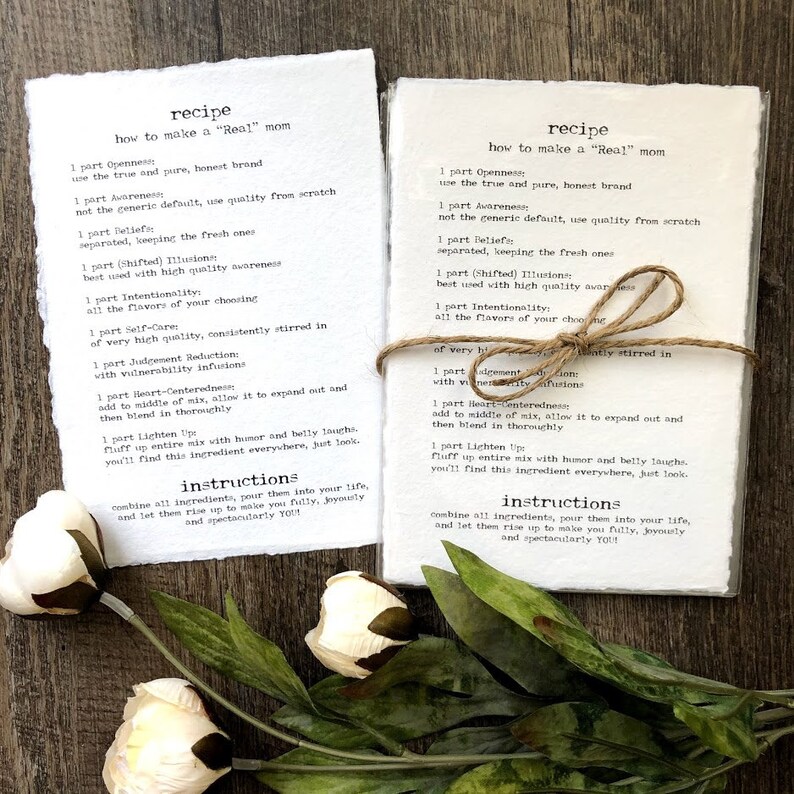 recipe
how to make a “Real” mom
1 part Openness:
use the true and pure, honest brand
1 part Awareness:
not the generic default, use quality from scratch
1 part Beliefs:
separated, keeping the fresh ones
1 part (Shifted) Illusions:
best used with high quality awareness
1 part Intentionality:
all the flavors of your choosing
1 part Self-Care:
of very high quality, consistently stirred in
1 part Judgement Reduction:
with vulnerability infusions
1 part Heart-Centeredness:
add to middle of mix, allow it to expand out and
then blend in thoroughly
1 part Lighten Up:
fluff up entire mix with humor and belly laughs.
you'll find this ingredient everywhere, just look.
instructions
combine all ingredients, pour them into your life,
and let them rise up to make you fully, joyously
and spectacularly YOU!
recipe
how to make a “Real” mom
1 part Openness:
use the true and pure, honest brand
1 part Awareness:
not the generic default, use quality from scratch
1 part Beliefs:
separated, keeping the fresh ones
1 part (Shifted) Illusions:
best used with high quality awareness
1 part Intentionality:
all the flavors of your choosing
of very high quality, consistently stirred in
1 part Judgement Reduction:
with vulnerability infusions
1 part Heart-Centeredness:
add to middle of mix, allow it to expand out and
then blend in thoroughly
1 part Lighten Up:
fluff up entire mix with humor and belly laughs.
you'll find this ingredient everywhere, just look.
instructions
combine all ingredients, pour them into your life,
and let them rise up to make you fully, joyously
and spectacularly YOU!